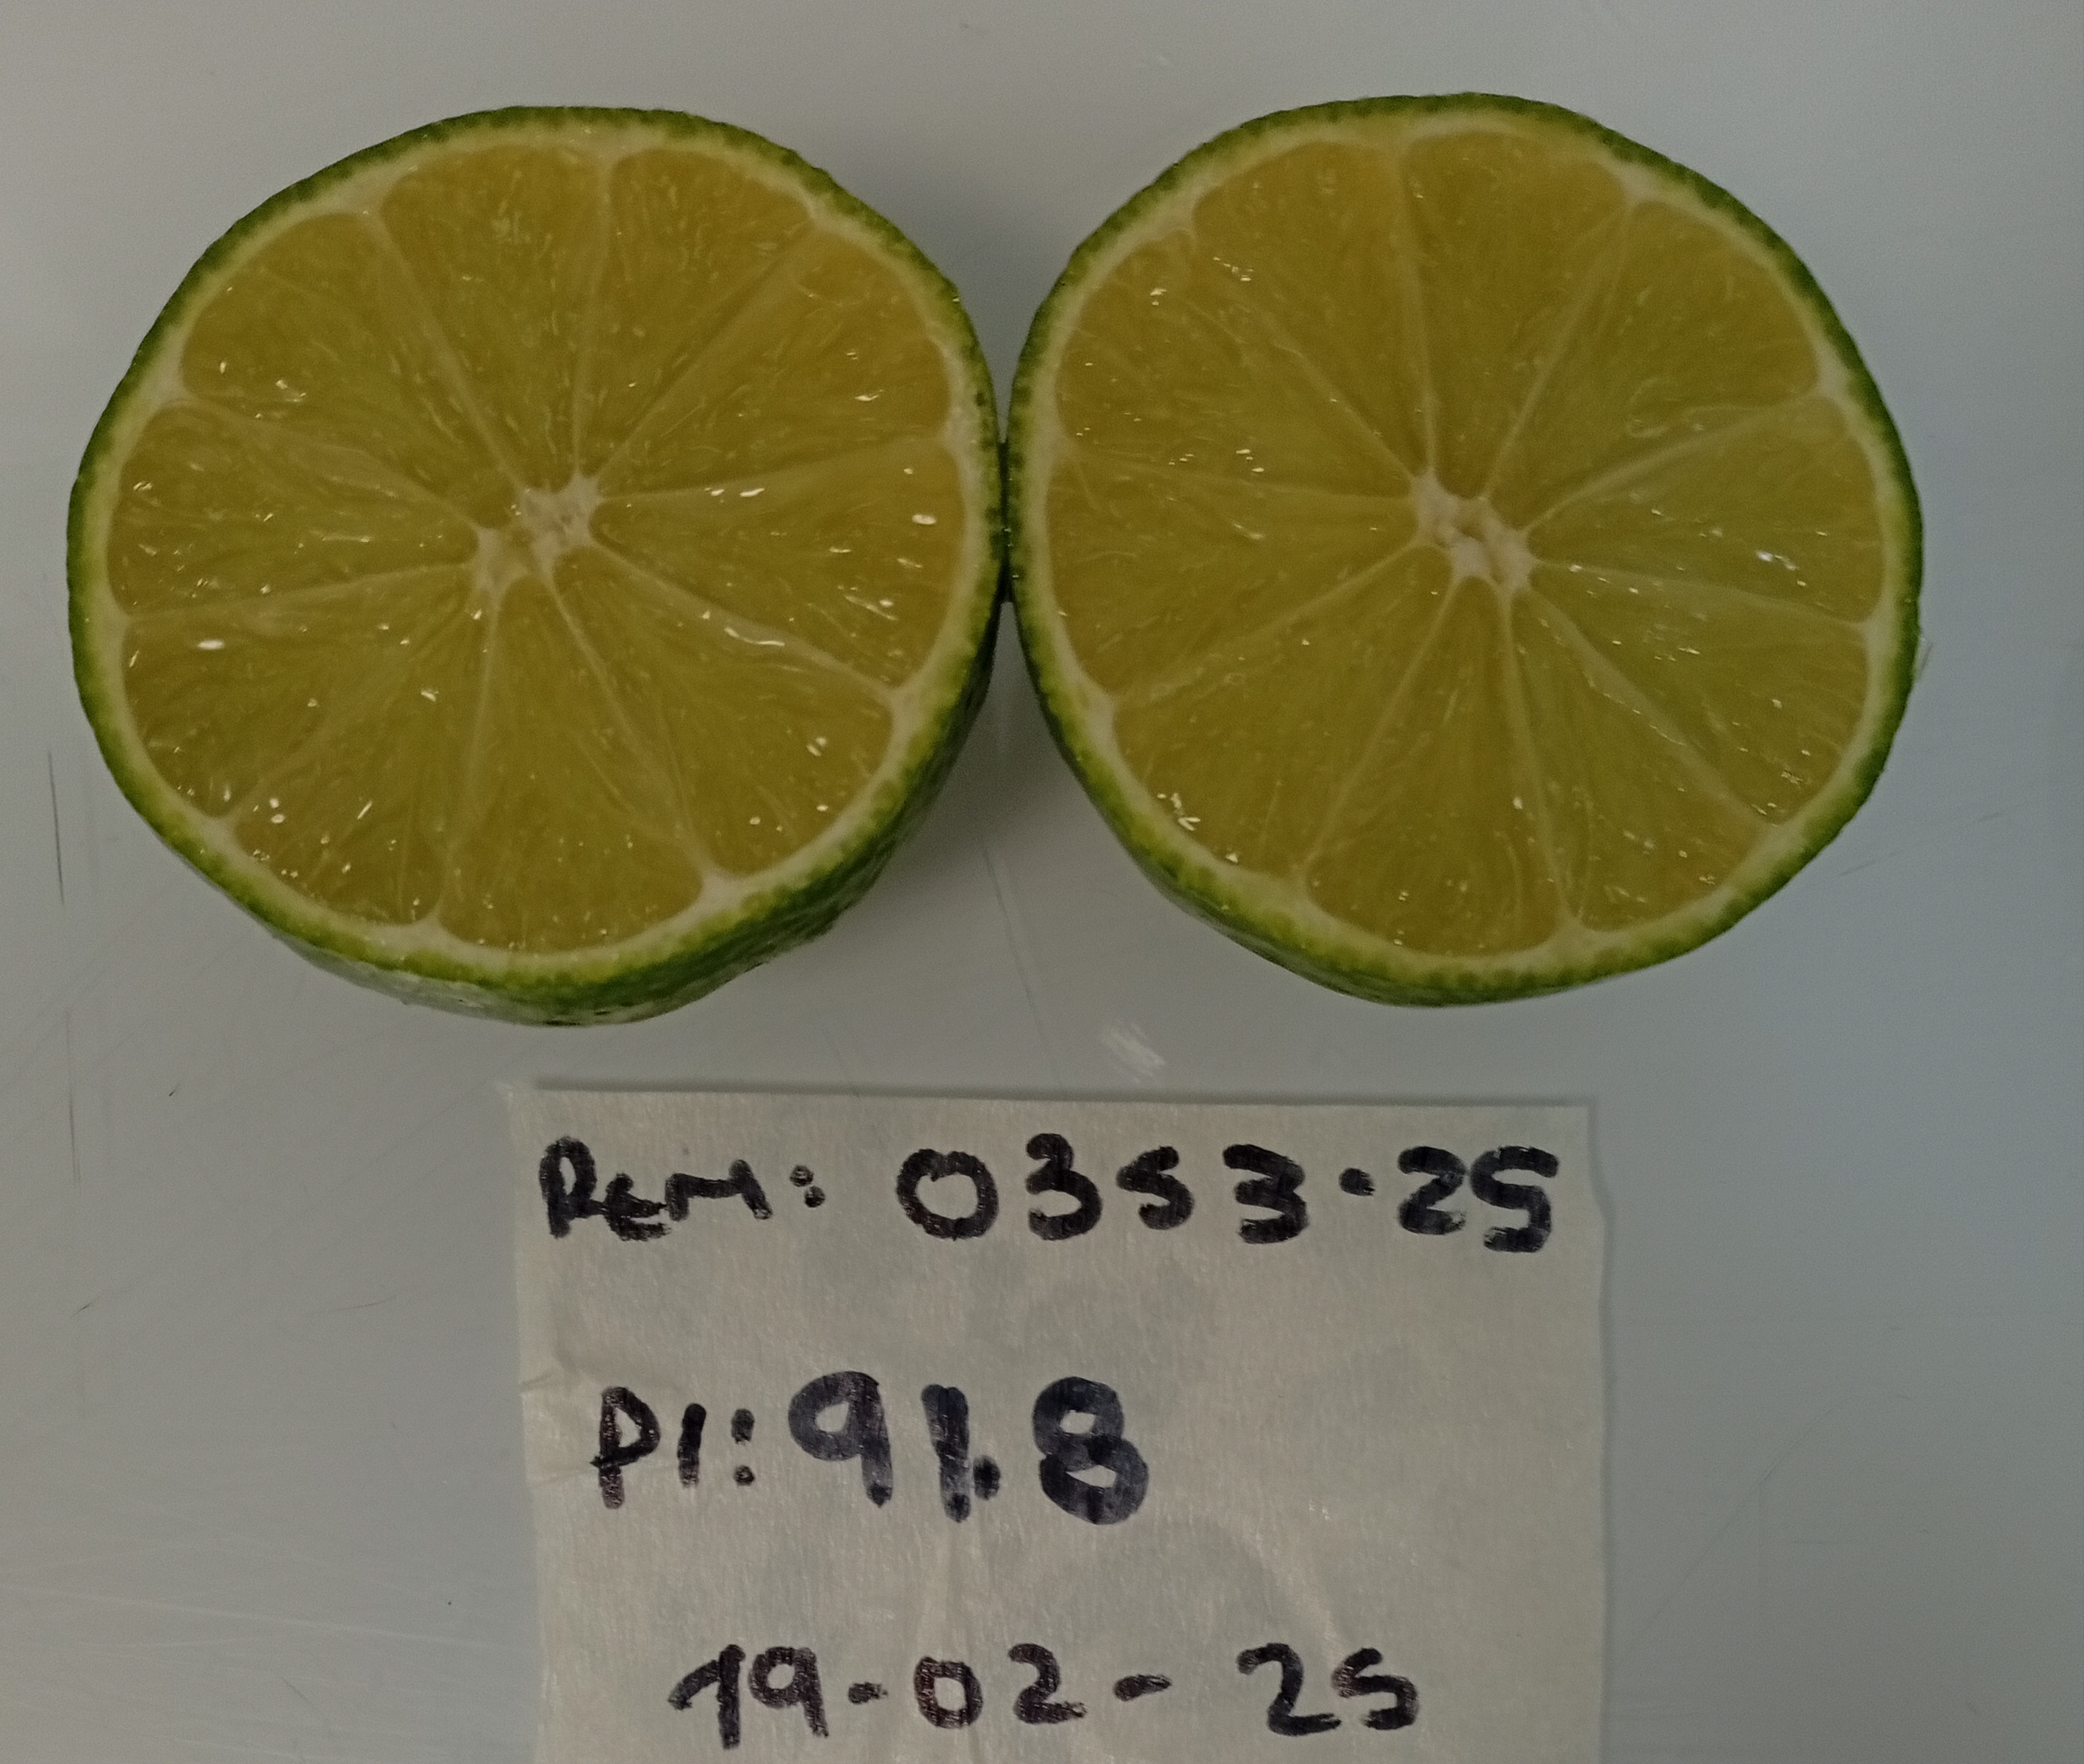 REM: 0353.25
PI: 91.8
19-02-25